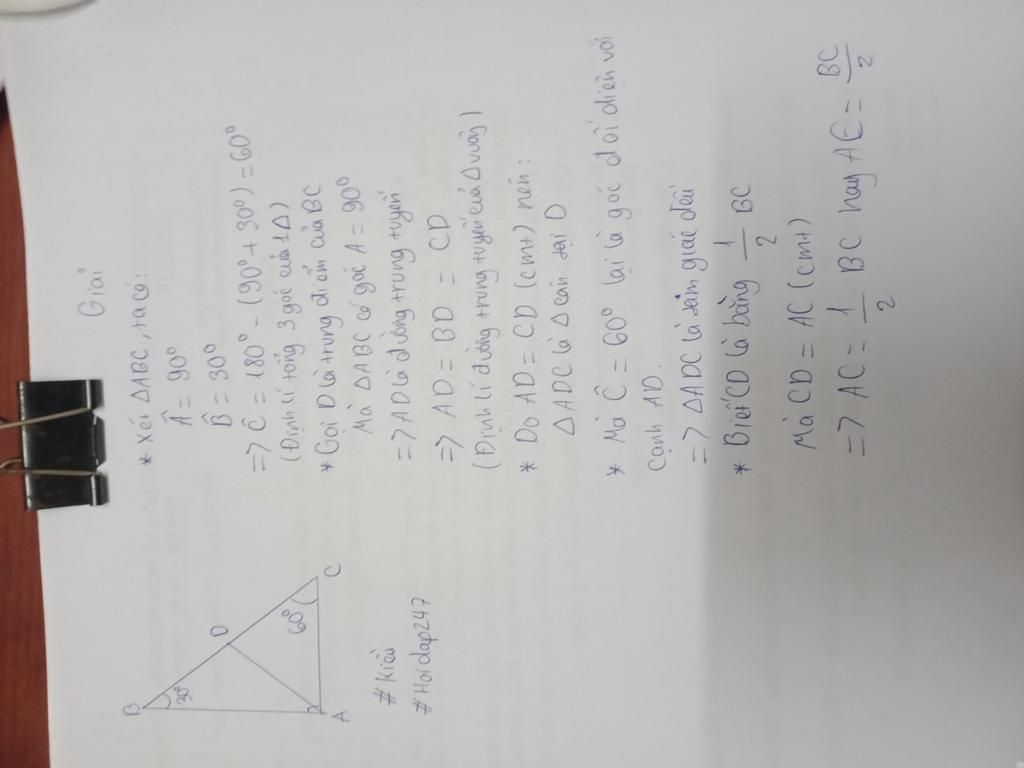 Giải
* Xét ΔABC, ta có:
Â = 90°
B̂ = 30°
=> Ĉ = 180° - (90° + 30°) = 60°
(Định lí tổng 3 góc của 1Δ)
* Gọi D là trung điểm của BC
Mà ΔABC có góc A = 90°
=> AD là đường trung tuyến
=> AD = BD = CD
(Định lí đường trung tuyến của Δ vuông)
* Do AD = CD (cmt) nên:
ΔADC là Δ cân tại D
* Mà Ĉ = 60° lại là góc đối diện với
cạnh AD.
=> ΔADC là tam giác đều
* Biết CD là bằng 1/2 BC
Mà CD = AC (cmt)
=> AC = 1/2 BC hay AC = BC/2
B
30°
D
60°
C
A
# Kiều
# Hoidap247